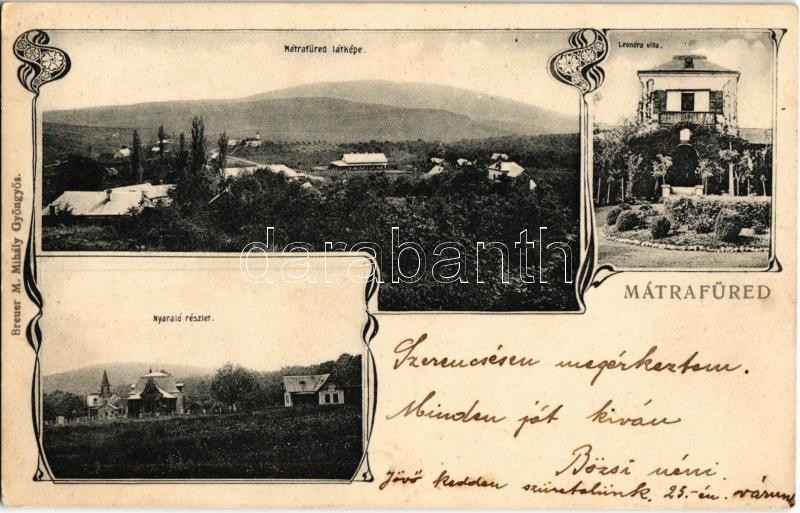 Mátrafüred látképe.
Leonóra villa.
Breuer M. Mihály Gyöngyös.
darabanth
MÁTRAFÜRED
Nyaraló részlet.
Szerencsésen megérkeztem.
Minden jót kiván
Bözsi néni.
Jövő kedden szüretelünk, 25-én, várunk